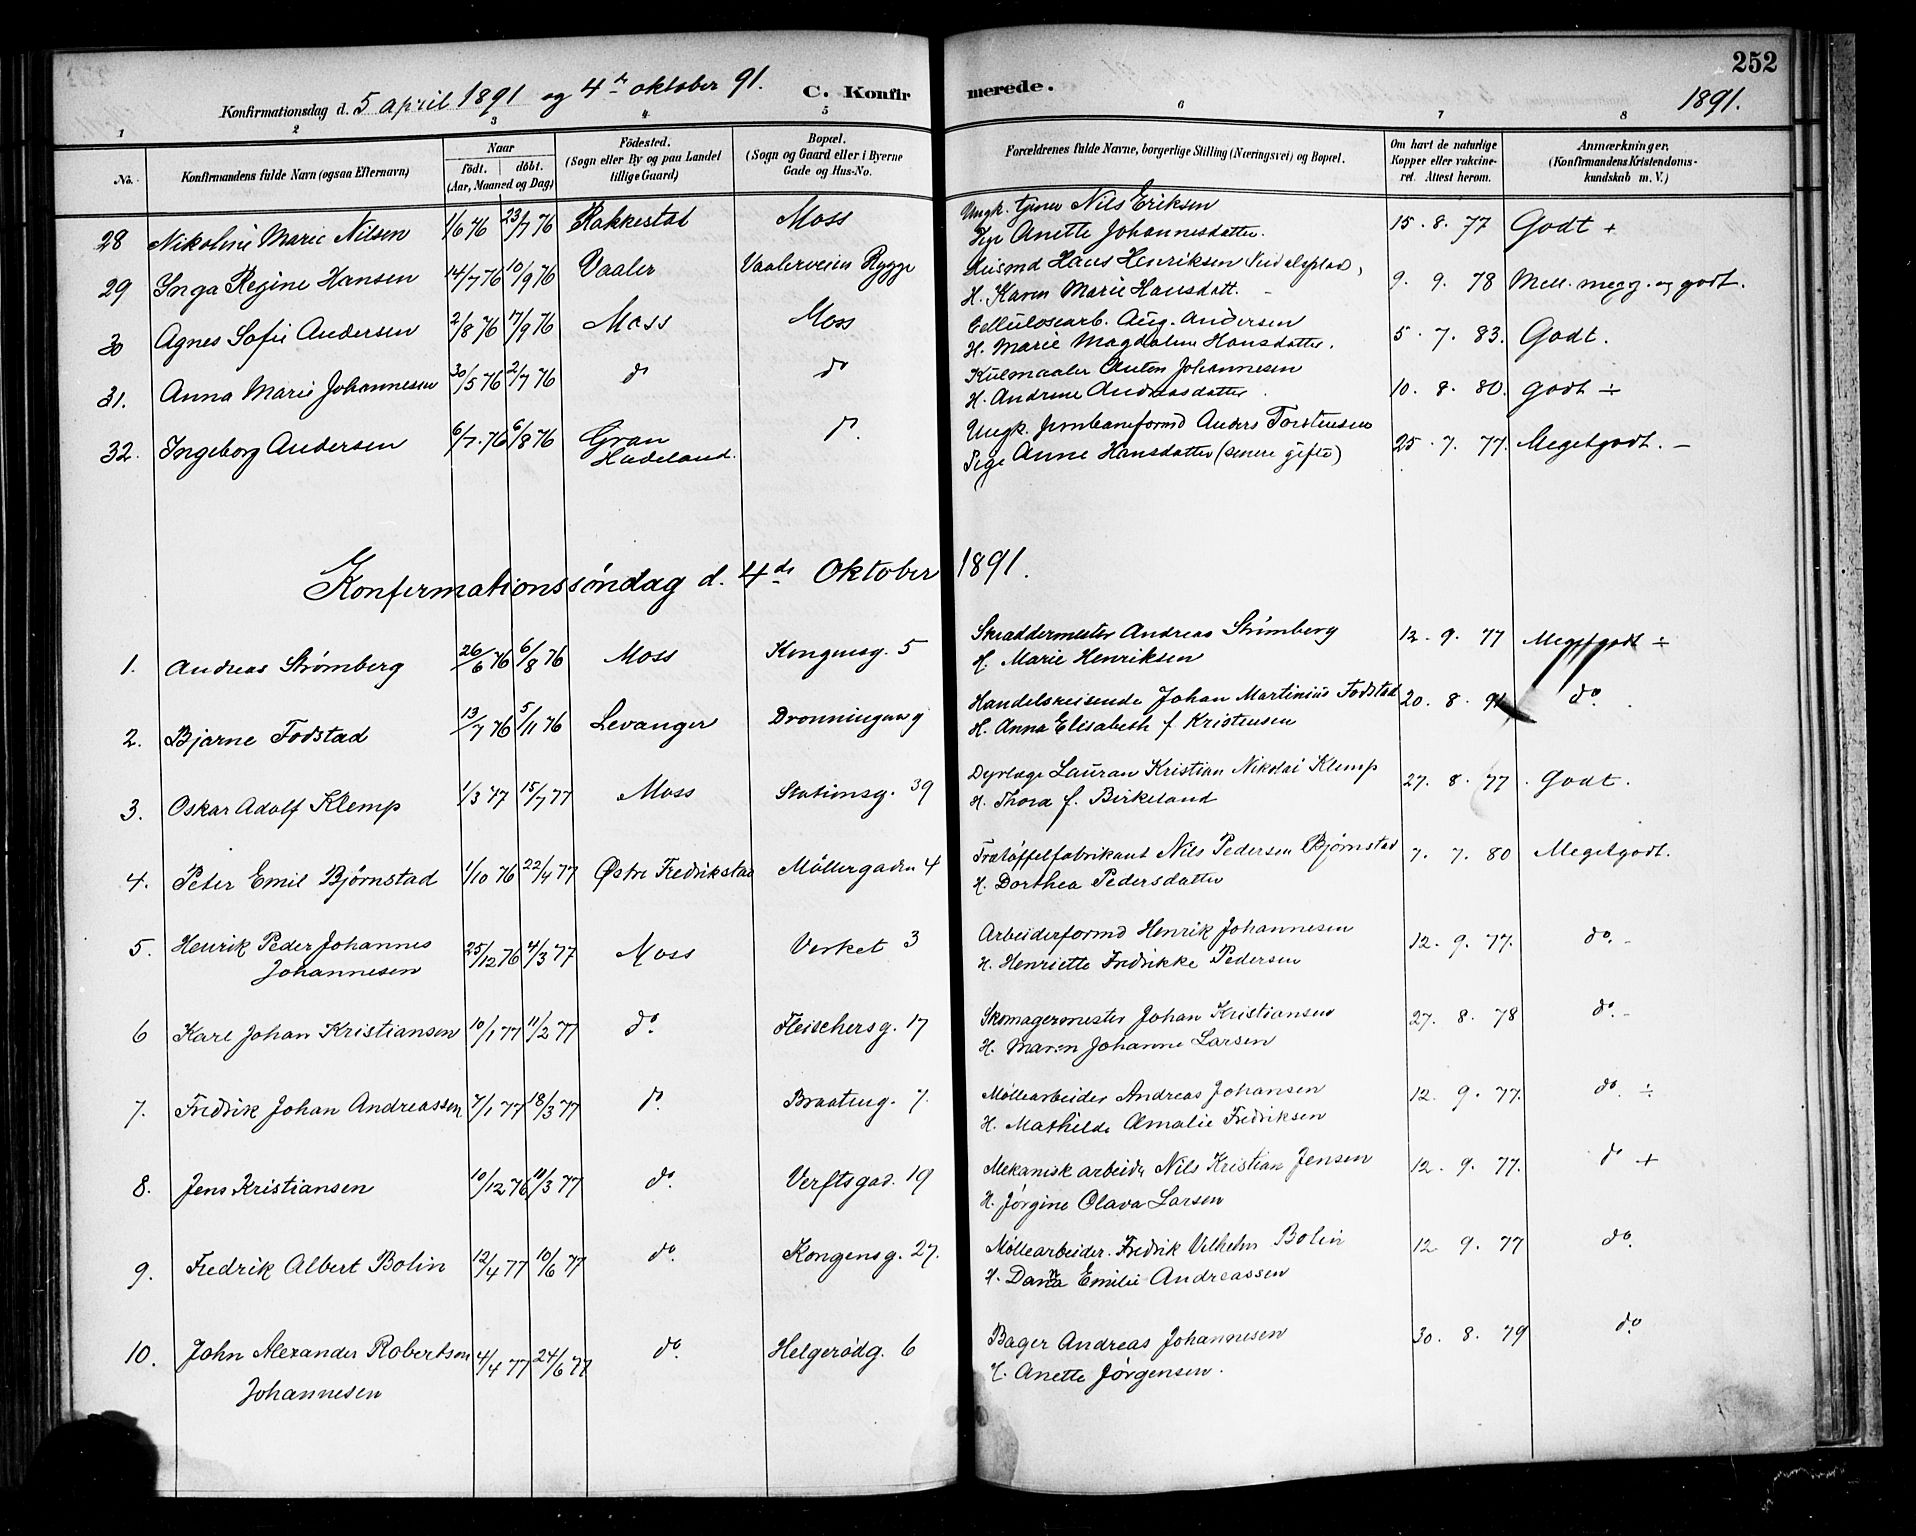 252
Konfirmationsdag d. 5 april 1891 og 4de oktober 91. C. Konfirmerede. 1891.
1 2 3 4 5 6 7 8
No. Konfirmandens fulde Navn (ogsaa Efternavn) Naar født. døbt. (Aar, Maaned og Dag) Fødested. (Sogn eller By og paa Landet tillige Gaard) Bopæl. (Sogn og Gaard eller i Byerne Gade og Hus-No. Forældrenes fulde Navne, borgerlige Stilling (Næringsvei) og Bopæl. Om havt de naturlige Kopper eller vaccineret. Attest herom. Anmærkninger. (Konfirmandens Kristendomskundskab m. V.)
28 Nikoline Marie Nilsen 1/6 76 23/7 76 Rakkestad Moss Ungk. Nils Eriksen 15. 8. 77 Godt +
Pige Anette Johannesdatter.
29 Inga Regine Hansen 14/7 76 10/9 76 Vaaler Vaalerveien Rygge Husmd Hans Henriksen 9. 9. 78 Mell. meg. og godt.
H. Karen Marie Hansdatt.
30 Agnes Sofie Andersen 2/8 76 17/9 76 Moss Moss Cellulosearb. Aug. Andersen 5. 7. 83. Godt.
H. Marie Magdalene Hansdatter.
31. Anna Marie Johannesen 30/5 76 2/7 76 do do Kulmaaler Anton Johannesen 10. 8. 80. godt ÷
H. Andrine Andreasdatter.
32. Ingeborg Andersen 6/7. 76 6/8 76 Gran Hadeland. do. Ungk. Jernbaneformd Anders Torstensen 25. 7. 77. Megetgodt. –
Pige Anne Hansdatter (senere gifte)
Konfirmationssøndag d. 4de Oktober 1891.
1. Andreas Strømberg 26/6 76 6/8 76 Moss Kongensg. 5 Skraddermester Andreas Strømberg 12. 9. 77 Megetgodt ÷
H. Marie Henriksen
2. Bjarne Fodstad 13/7 76 5/11 76 Levanger Dronningensg Handelsreisende Johan Martinius Fodstad 20. 8. 91 do.
H. Anna Elisabeth f Kristensen
3. Oskar Adolf Klemp 1/3 77 15/7 77 Moss Stationsg. 39 Dyrlæge Lauran Kristian Nikolai Klemp 27. 8. 77. Godt.
H. Thora f. Birkeland
4. Peter Emil Bjørnstad 1/10 76 22/4 77 Østre Fredrikstad Møllergaden 4 Trætøffelfabrikant Nils Pedersen Bjørnstad 7. 7. 80 Megetgodt.
H. Dorthea Pedersdatter
5. Henrik Peder Johannes 25/12 76 4/3 77 Moss Verket 3 Arbeiderformd Henrik Johannesen 12. 9. 77. do. –
Johannesen H. Henriette Fredrikke Pedersen
6 Karl Johan Kristiansen 10/1 77 11/2 77 do. Fleischersg. 17 Skomagermester Johan Kristiansen 27. 8. 78 do. –
H. Maren Johanne Larsen
7. Fredrik Johan Andreassen 7/1 77 18/3 77 do. Braateng. 7. Møllearbeider Andreas Johansen 12. 9. 77. do. ÷
H. Mathilde Amalie Fredriksen
8. Jens Kristiansen 10/12 76 10/3 77 do. Verftsgad. 19 Mekanisk arbeider Nils Kristian Jensen 12. 9. 77. do +
H. Jørgine Olava Larsen
9. Fredrik Albert Bolin 12/4 77 10/6 77 do. Kongensg. 27. Møllearbeider. Fredrik Vilhelm Bolin 12. 9. 77 do.
H. Emilie Andreassen
10. John Alexander Robertson 4/4 77 24/6 77 do. Helgerødg. 6 Bager Andreas Johannesen 30. 8. 79 do.
Johannesen H. Anette Jørgensen.